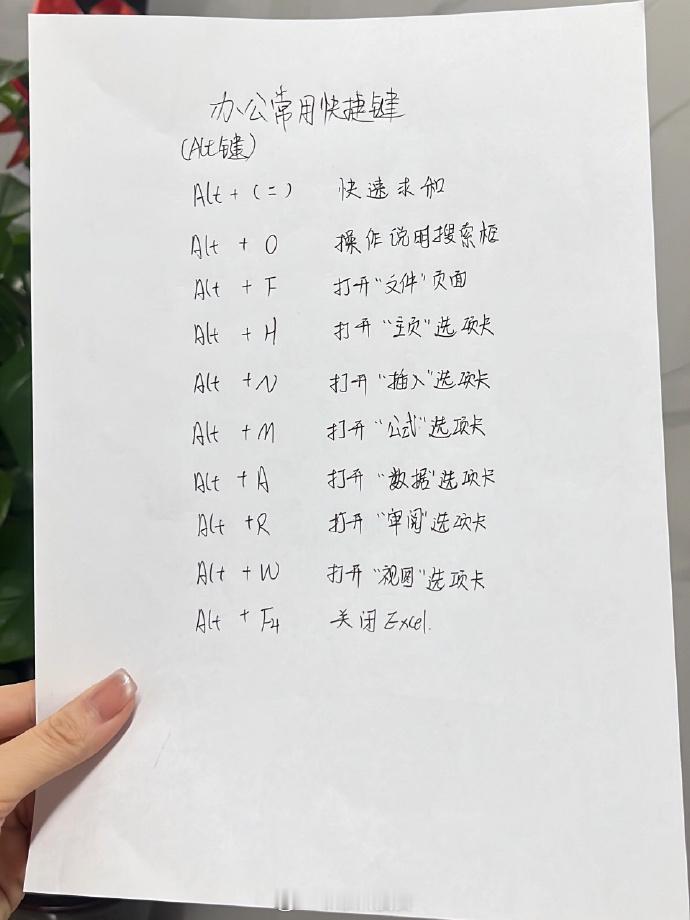 办公常用快捷键
(Alt键)
Alt + (=) 快速求和
Alt + O 操作说明搜索框
Alt + F 打开"文件"页面
Alt + H 打开"主页"选项卡
Alt + N 打开"插入"选项卡
Alt + M 打开"公式"选项卡
Alt + A 打开"数据"选项卡
Alt + R 打开"审阅"选项卡
Alt + W 打开"视图"选项卡
Alt + F4 关闭Excel.